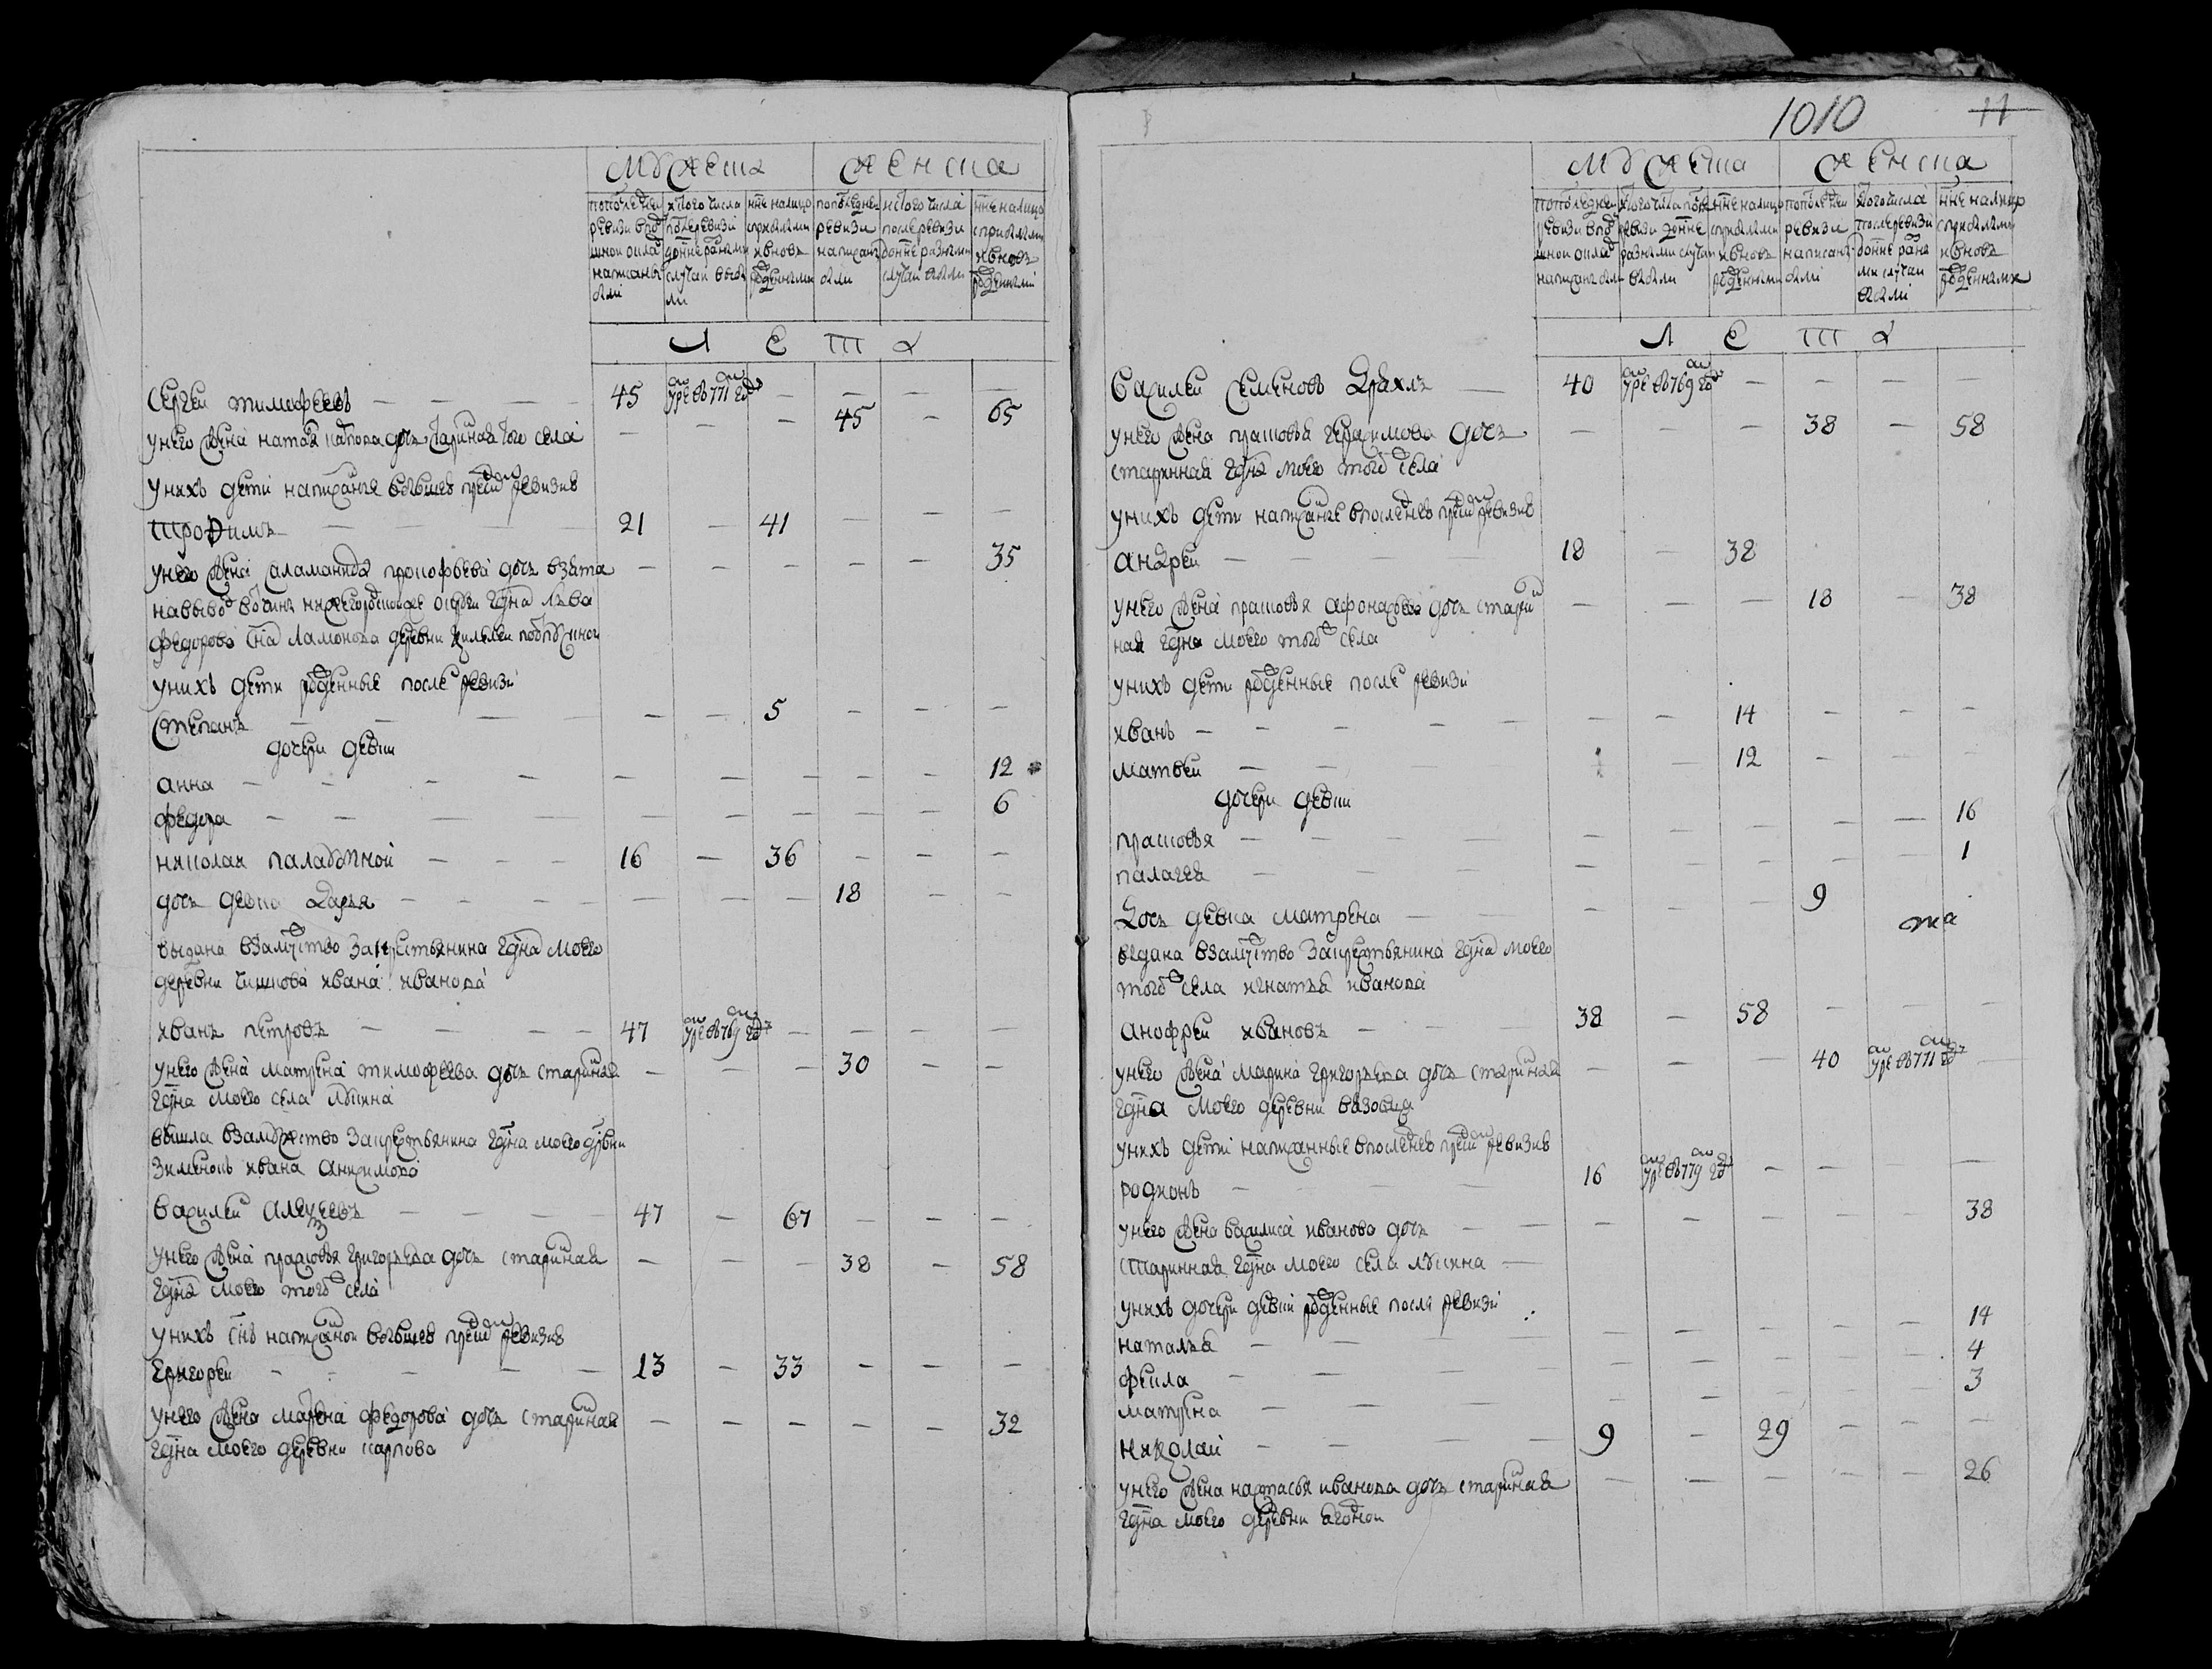 мужеска женска
пополедней ревизи вподушнои окладъ написаны были
исого числа послеревизи доныне разными случаи выбыли
ныне налицо сприбылыми ивновь рожденными
попоследнеи ревизи написаны были
исого числа послеревизи доныне разными случаи выбыли
ныне налицо сприбылыми ивновь рожденными
л е т а
Сергеи тимофеевъ 45 умре в 771 году
унего жена дочь стариная того села 45 65
унихъ дети написаныя вбывшею пред сею ревизию
трофимъ 21 41
унего жена саламанида прокофьева дочь взята 35
навывод
федорова сна деревни
унихъ дети рожденные после ревизи
степанъ 5
дочери девки
анна 12
федора 6
николаи 16 36
дочь девка дарья 18
выдана взамужство за крестьянина гдна моего
деревни ивана иванова
иванъ петровъ 47 умре в 769 году
унего жена матрена тимофеева дочь стариная 30
гдна моего села
вышла взамужество закрестьянина гдна моего дрвни
ивана анисимова
василеи алексеевъ 47 67
унего жена прасковья григорьева дочь стариная 38 58
гдна моего того села
унихъ снъ написанои вбывшею пред сею ревизию
григореи 13 33
унего жена федорова дочь стариная 32
гдна моего деревни карпова
1010 11
мужеска женска
попоследнеи ревизи вподушнои окладъ написаны были
исого числа после ревизи доныне разными случаи выбыли
ныне налицо сприбылыми ивновь рожденными
попоследнеи ревизи написаны были
исого числа послеревизи доныне разными случаи выбыли
ныне налицо сприбылыми ивновь рожденными
л е т а
василеи семеновъ 40 умре в 769 году
унего жена прасковья герасимова дочь 38 58
стариная гдна моего того села
унихъ дети написаные впоследнею пред сею ревизию
андреи 18 38
унего жена прасковья афонасева дочь стари 18 38
ная гдна моего того села
унихъ дети рожденные после ревизи
иванъ 14
матвеи 12
дочери девки
прасковья 16
палагея 1
дочь девка матрена 9
выдана взамужство закрестьянина гдна моего
того села игнатья иванова
анофреи ивановъ 38 58
унего жена марина григорьева дочь стариная 40 умре в 771 году
гдна моего деревни
унихъ дети написанные впоследнею пред сею ревизию
родионъ 16 умре в 779 году
унего жена василиса иванова дочь 38
старинная гдна моего села
унихъ дочери девки рожденные после ревизи
наталья 14
фекла 4
матрена 3
николаи 9 29
унего жена настасья иванова дочь стариная 26
гдна моего деревни